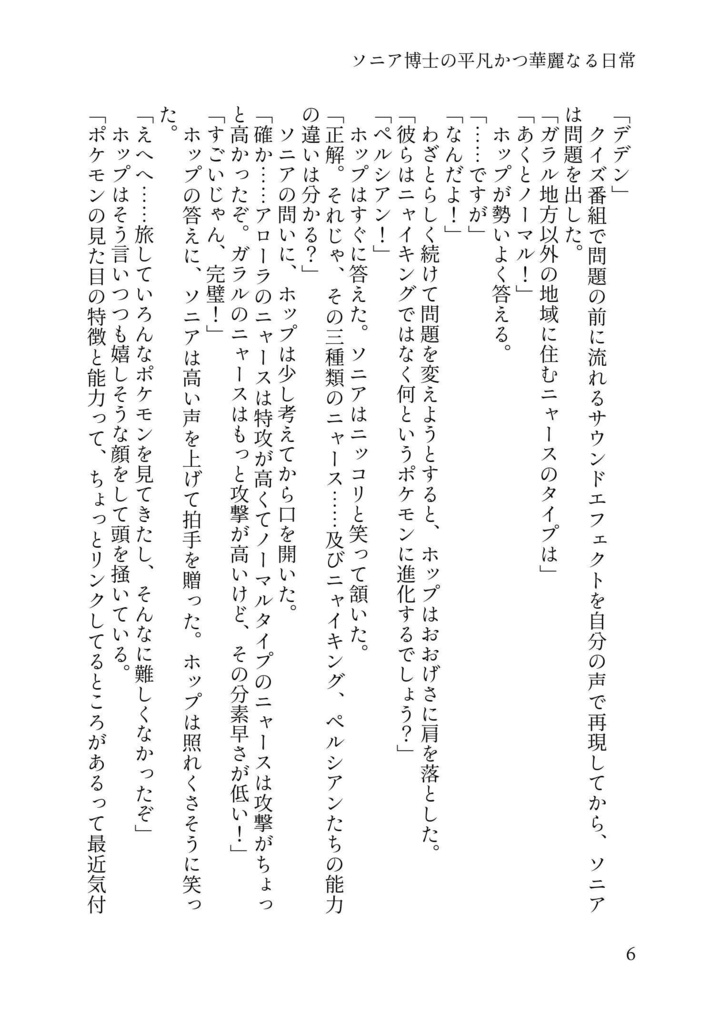 ソニア博士の平凡かつ華麗なる日常
「デデン」
クイズ番組で問題の前に流れるサウンドエフェクトを自分の声で再現してから、ソニア
は問題を出した。
「ガラル地方以外の地域に住むニャースのタイプは」
「あくとノーマル！」
ホップが勢いよく答える。
「……ですが」
「なんだよ！」
わざとらしく続けて問題を変えようとすると、ホップはおおげさに肩を落とした。
「彼らはニャイキングではなく何というポケモンに進化するでしょう？」
「ペルシアン！」
ホップはすぐに答えた。ソニアはニッコリと笑って頷いた。
「正解。それじゃ、その三種類のニャース……及びニャイキング、ペルシアンたちの能力
の違いは分かる？」
ソニアの問いに、ホップは少し考えてから口を開いた。
「確か……アローラのニャースは特攻が高くてノーマルタイプのニャースは攻撃がちょっ
と高かったぞ。ガラルのニャースはもっと攻撃が高いけど、その分素早さが低い！」
「すごいじゃん、完璧！」
ホップの答えに、ソニアは高い声を上げて拍手を贈った。ホップは照れくさそうに笑っ
た。
「えへへ……旅していろんなポケモンを見てきたし、そんなに難しくなかったぞ」
ホップはそう言いつつも嬉しそうな顔をして頭を掻いている。
「ポケモンの見た目の特徴と能力って、ちょっとリンクしてるところがあるって最近気付
6